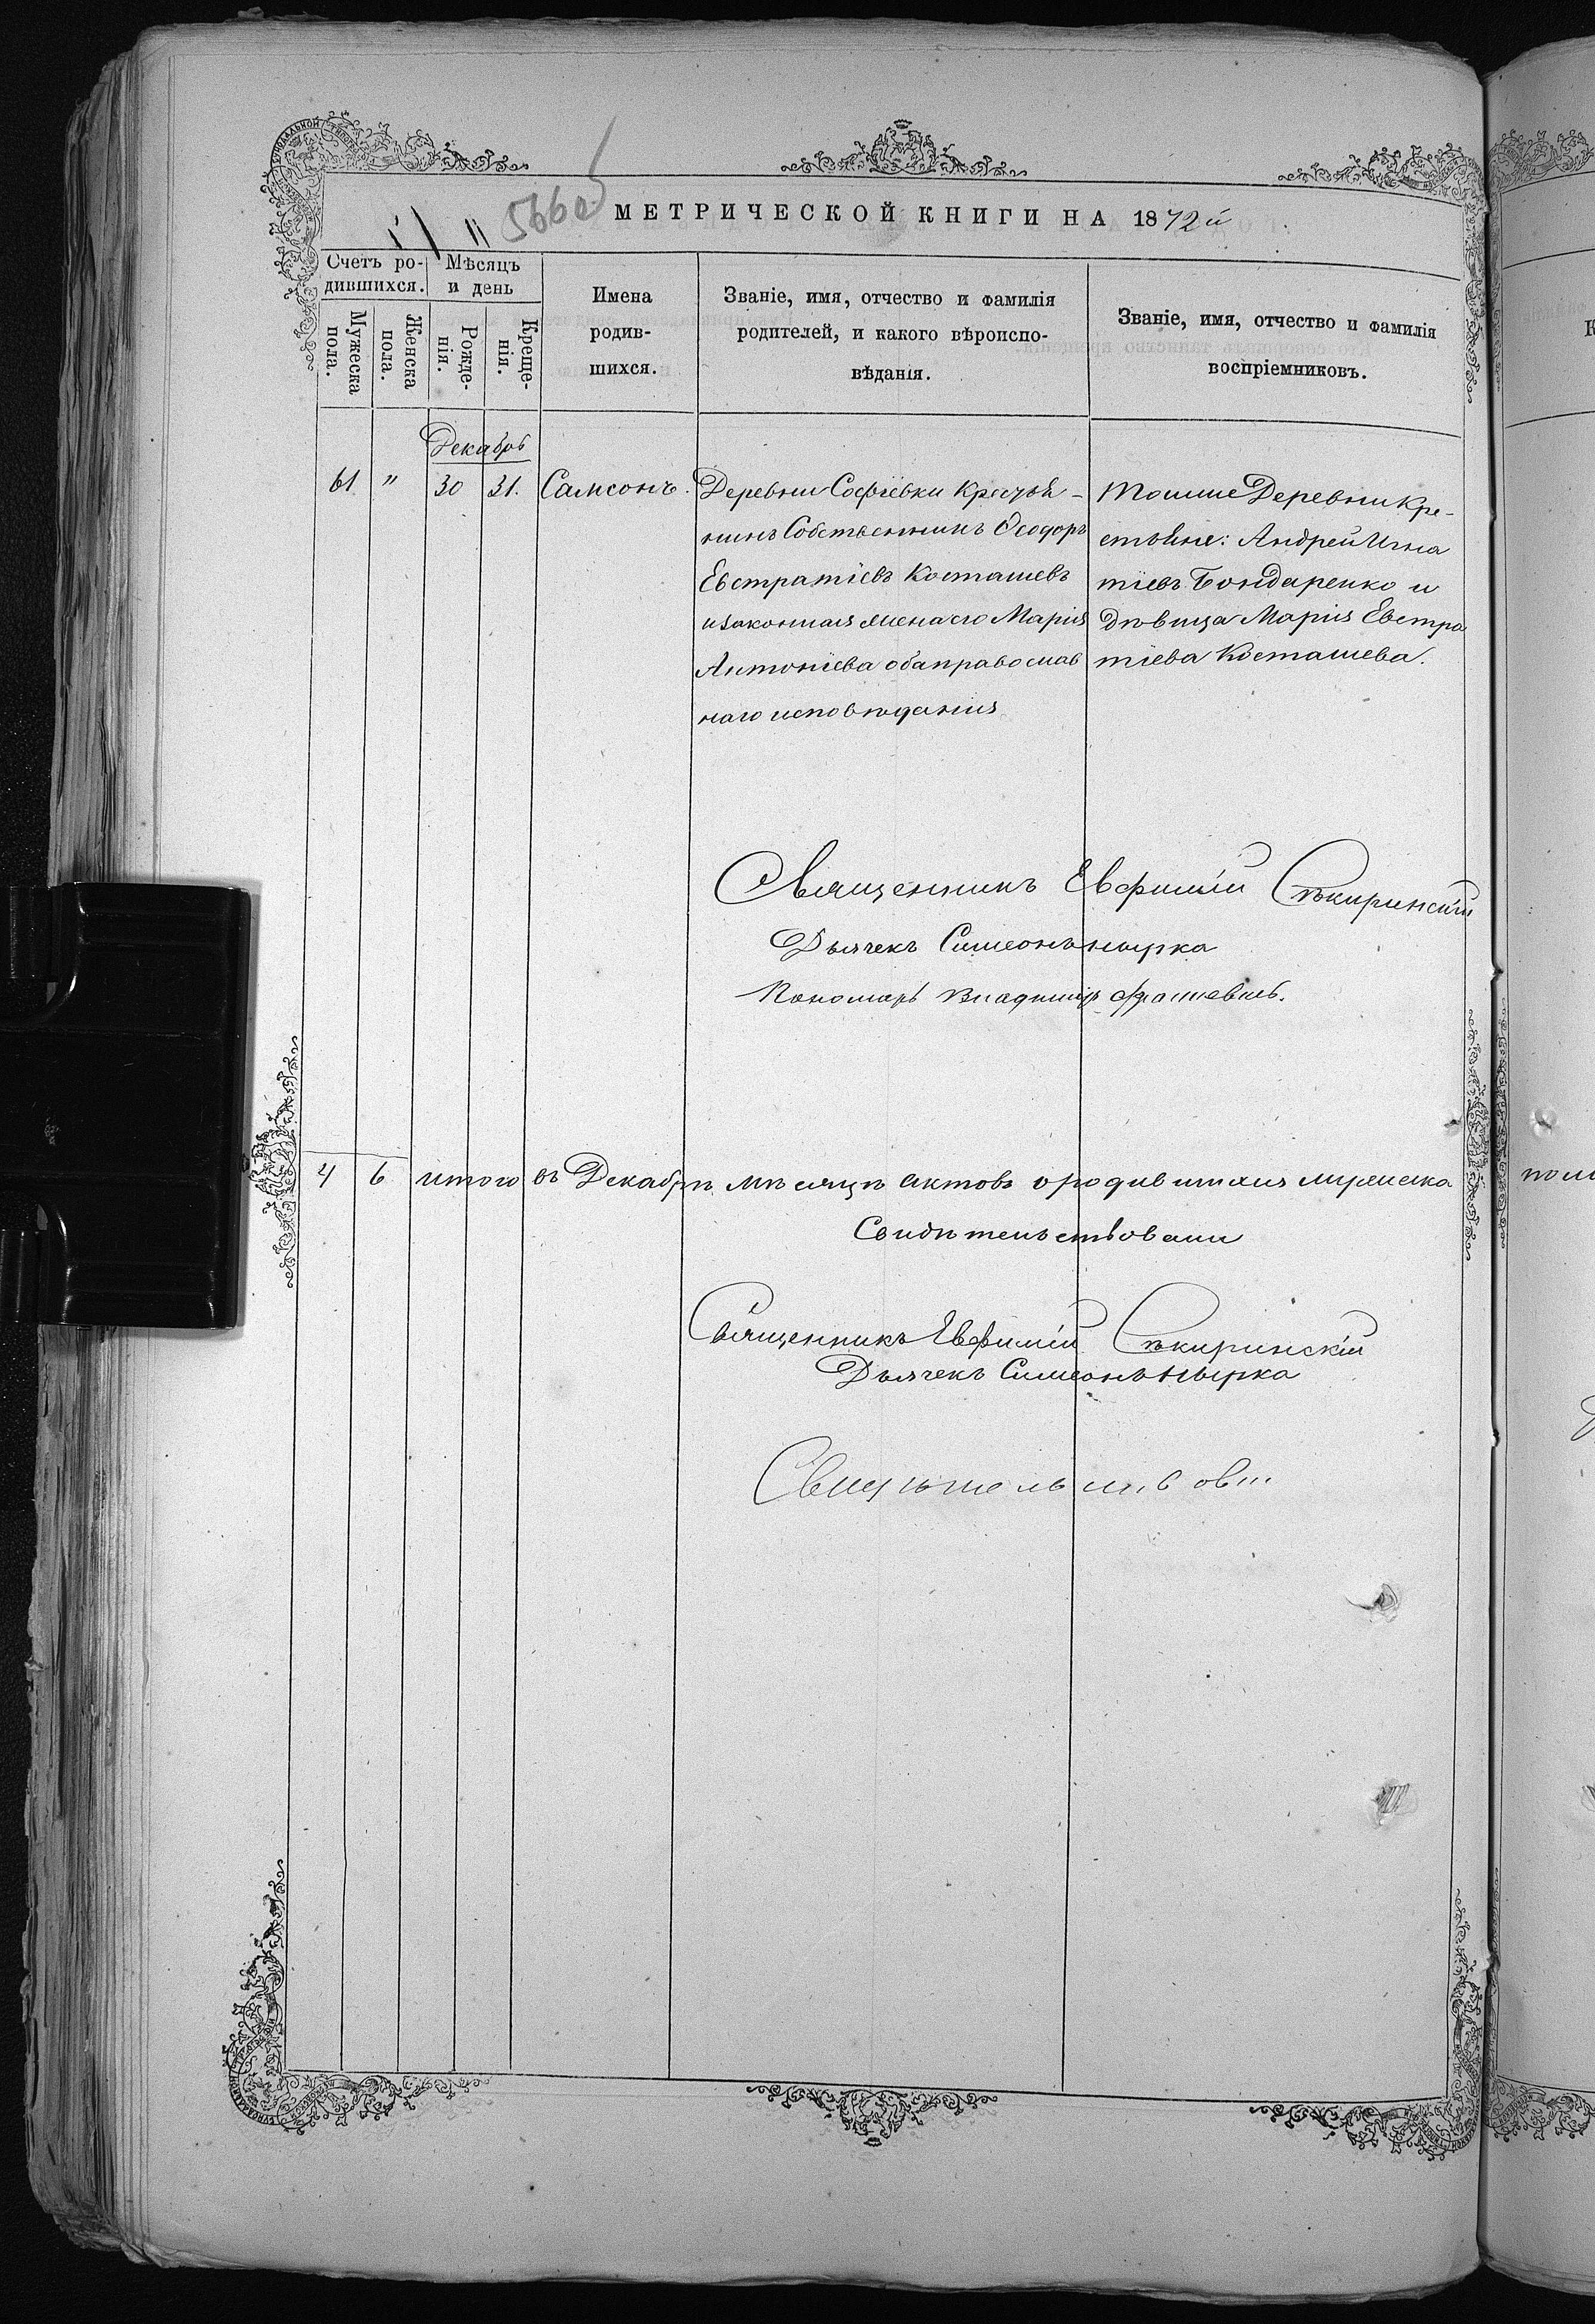 566об
МЕТРИЧЕСКОЙ КНИГИ НА 1872й
Счетъ ро-дившихся.
Мѣсяцъ и день
Мужеска пола.
Женска пола.
Рожде-нія.
Креще-нія.
Имена родив-шихся.
Званіе, имя, отчество и фамилія
родителей, и какого вѣроиспо-
вѣданія.
Званіе, имя, отчество и фамилія
воспріемниковъ.
Декабрь
61 " 30 31. Самсонъ.
Деревни Софіевки Крестья-
нинъ Собственникъ Ѳеодоръ
Евстратіевъ Косташевъ
и законная жена его Марія
Антоніева оба православ
наго исповѣданія
Тоиже Деревни Кре-
стьяне: Андрей Игна
тіевъ Бондаренко и
Дѣвица Марія Евстра
тіева Косташева.
Священникъ Евфимій Сѣкиринскій
Дьячекъ Симеонъ Нырка
Пономарь Владиміръ
4 6 итого въ Декабрѣ мѣсяцѣ актовъ о родившихся мужеска
Свидѣтельствовали
Священникъ Евфимій Сѣкиринскій
Дьячекъ Симеонъ Нырка